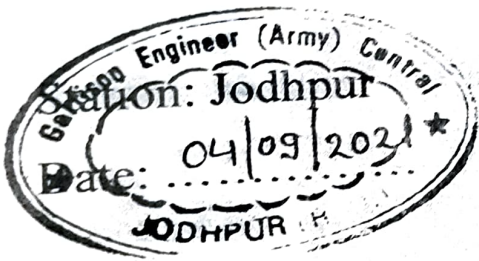 Garrison Engineer (Army) Central
Station: Jodhpur
Date: 04/09/2021
JODHPUR